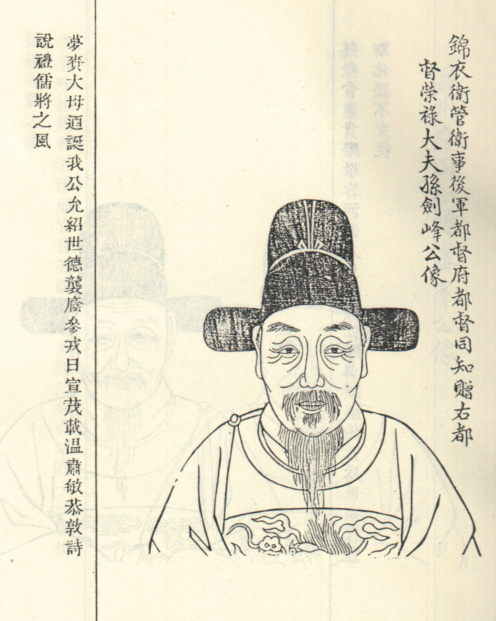 錦衣衛管衛事後軍都督府都督同知贈右都
督榮祿大夫孫劍峰公像
夢賚大母迺誕我公允紹世德襲廕參戎日宣茂載温肅敏恭敦詩
說禮儒將之風